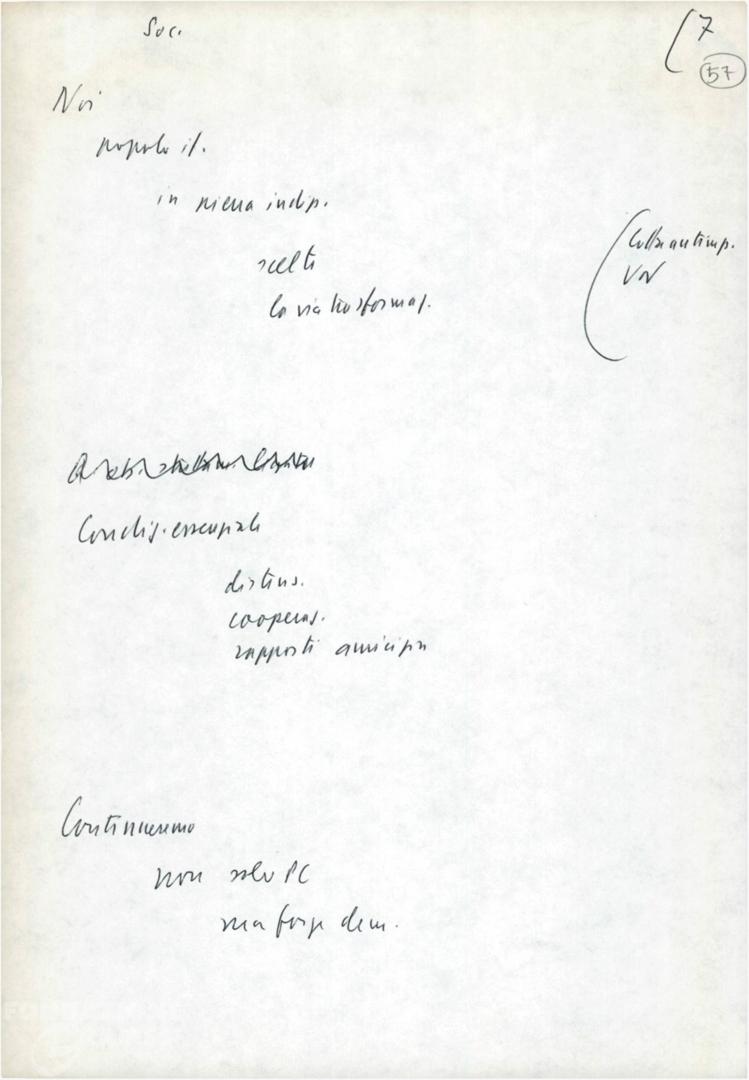 Soc.
7
57
Noi
popolo it.
in piena indip.
scelto
la via trasformaz.
Collaz antimp.
VN
Condiz. essenziale
distens.
cooperaz.
rapporti amicizia
Continueremo
non solo PC
ma forze dem.